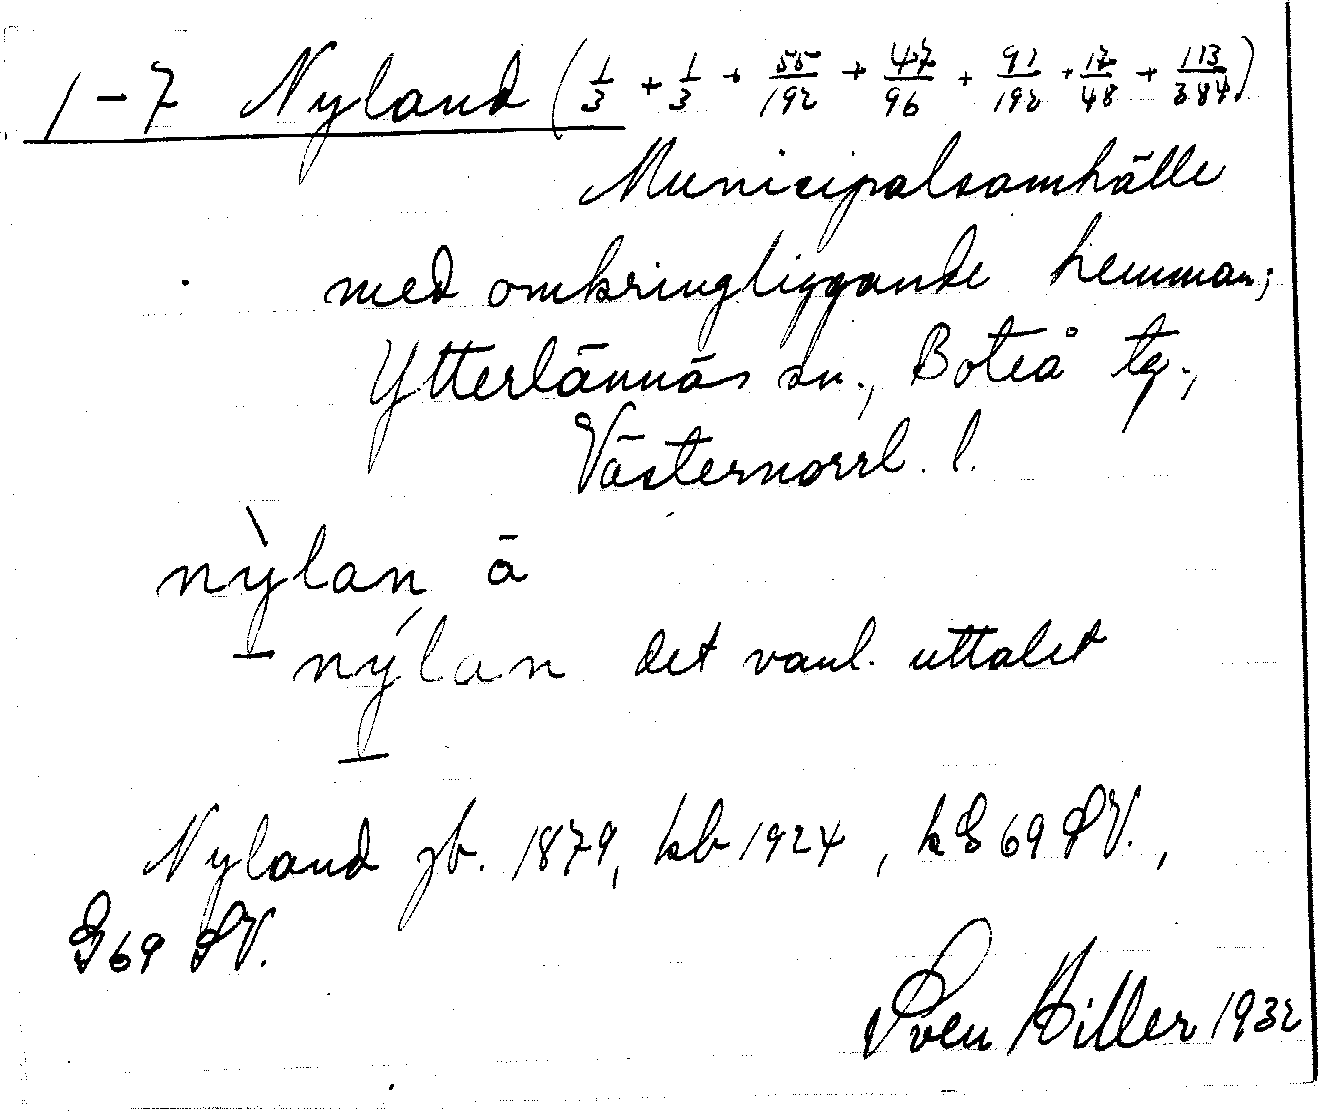 1-7 Nyland (1/3 + 1/3 + 55/192 + 47/96 + 91/192 + 17/48 + 113/384)
Municipalsamhälle
med omkringliggande hemman;
Ytterlännäs sn., Boteå tg.,
Västernorrl. l.
nỳlan ā
nýlan det vanl. uttalet
Nyland jb. 1879, kb 1924, kG 69 SV.,
G 69 SV.
Sven Hiller 1932